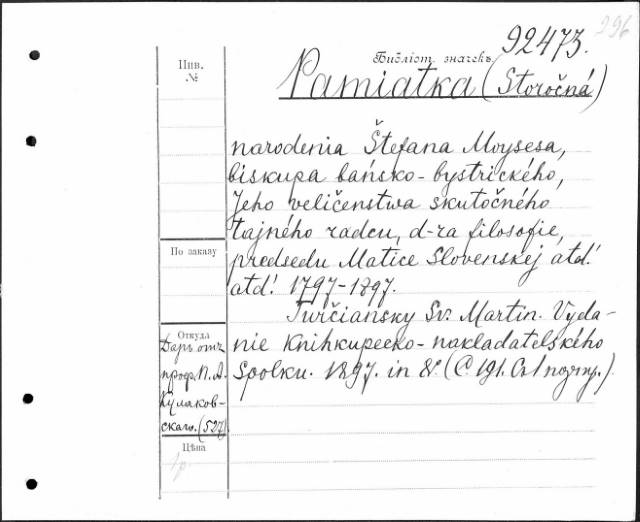 296
92473.
Инв.
№
Библіот. значекъ
Pamiatka (Storočná)
narodenia Štefana Moysesa,
biskupa bańsko-bystrického,
Jeho veličenstwa skutočného
tajného radcu, d-ra filosofie,
predsedu Matice Slovenskej atď.
atď. 1797-1897.
Turčiansky Sv. Martin. Vyda-
nie Knihkupecko-nakladatelského
Spolku. 1897. in 8º. (C. 191. Cr
По заказу
Откуда
Даръ отъ
проф. П. А.
Кулаков-
скаго. (527).
Цѣна
1р